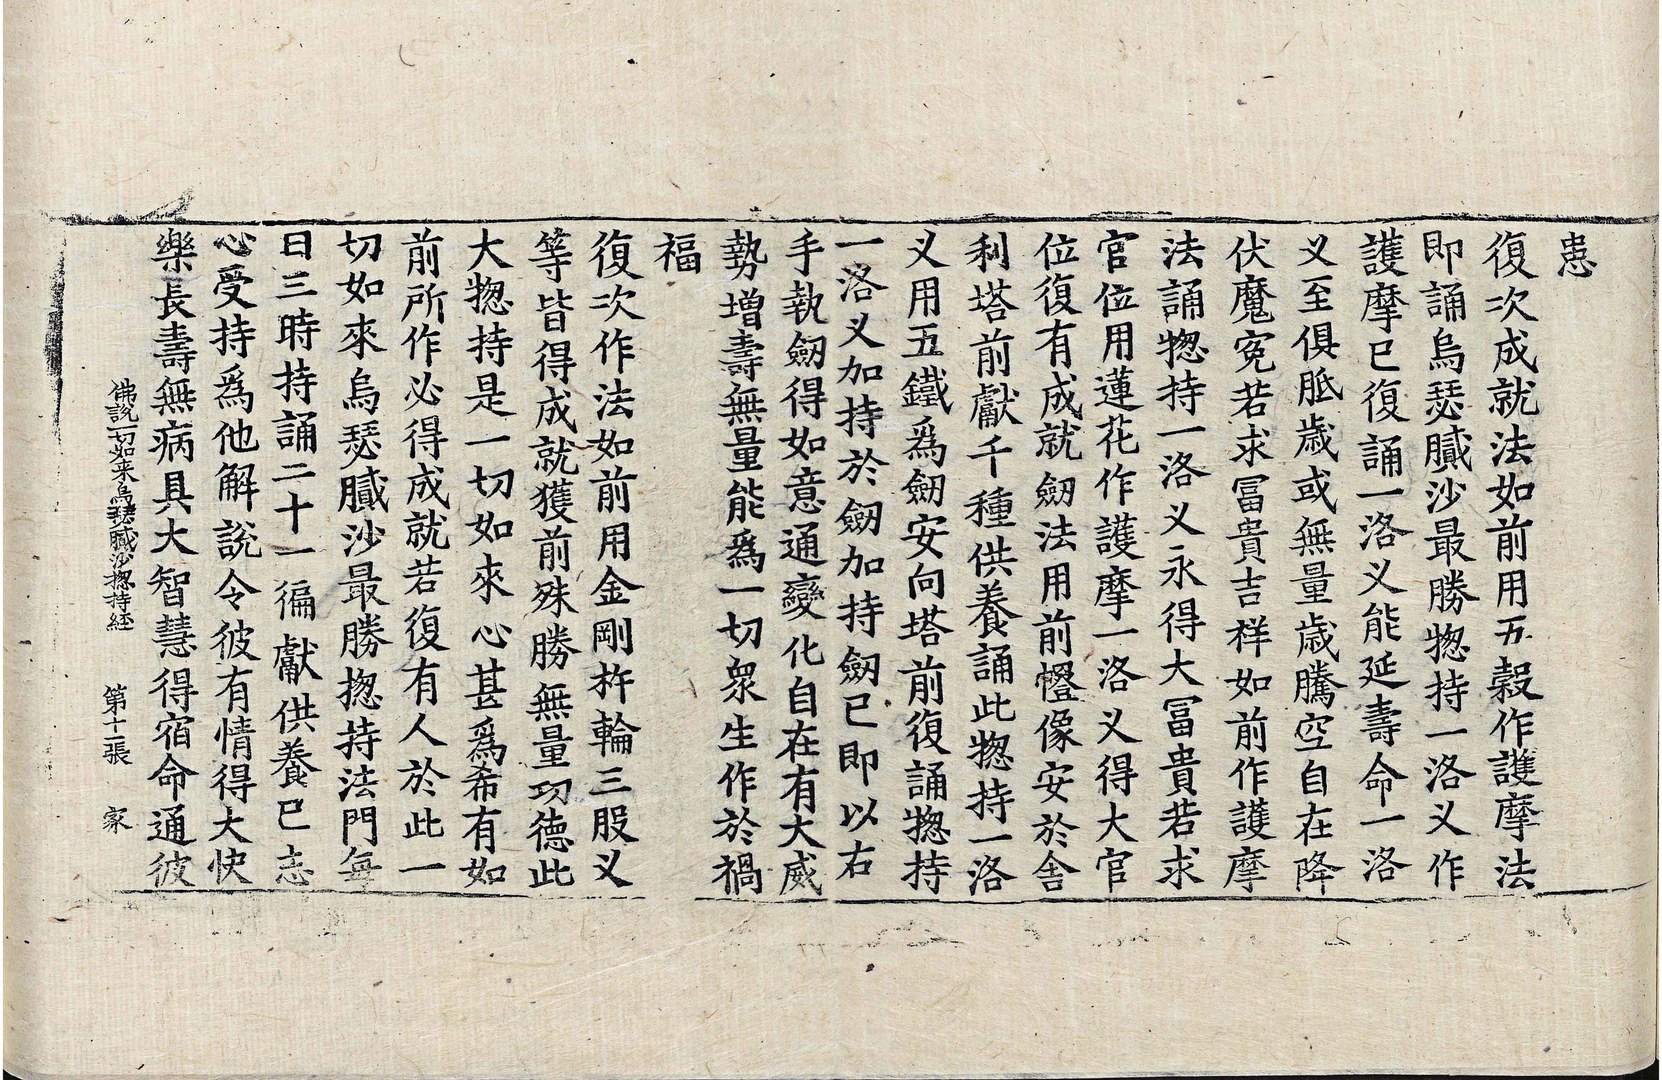 患
復次成就法如前用五穀作護摩法
即誦烏瑟膩沙最勝揔持一洛义作
護摩已復誦一洛义能延壽命一洛
义至俱胝歲或無量歲騰空自在降
伏魔寃若求冨貴吉祥如前作護摩
法誦揔持一洛义永得大冨貴若求
官位用蓮花作護摩一洛义得大官
位復有成就劔法用前㡧像安於舍
利塔前獻千種供養誦此揔持一洛
义用五鐵爲劔安向塔前復誦揔持
一洛义加持於劔加持劔已即以右
手執劔得如意通變化自在有大威
勢增壽無量能爲一切衆生作於禍
福
復次作法如前用金剛杵輪三股义
等皆得成就獲前殊勝無量功德此
大揔持是一切如來心甚爲希有如
前所作必得成就若復有人於此一
切如來烏瑟膩沙最勝揔持法門每
日三時持誦二十一徧獻供養已志
心受持爲他解說令彼有情得大快
樂長壽無病具大智慧得宿命通彼
佛說一切如来烏瑟膩沙揔持経 第十一張 家